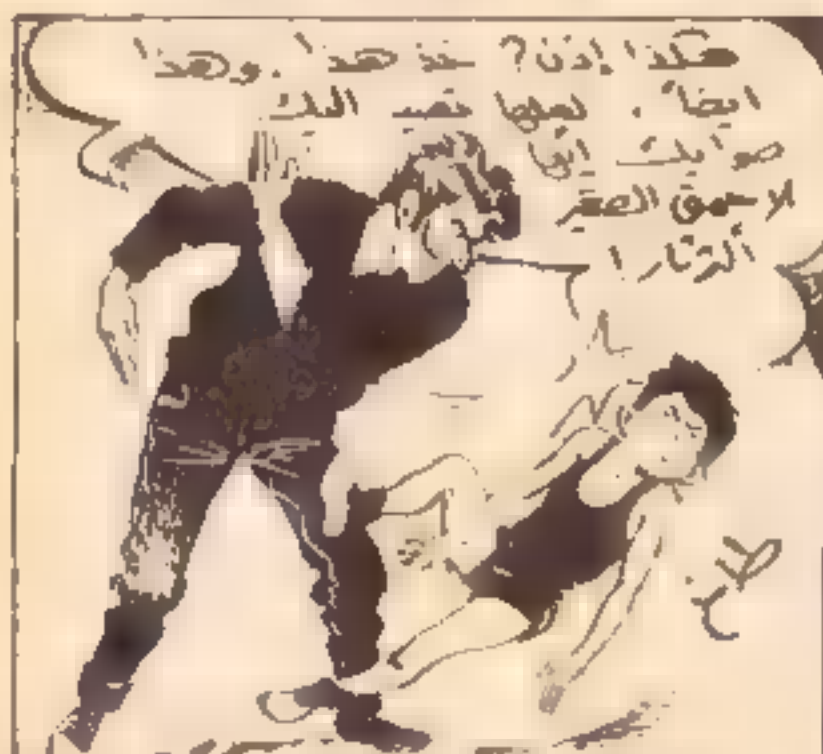 هكذا إذن؟ خذ هذا. وهذا
ايضاً. لعلها تعيد اليك
صوابك أيها
الاحمق الصغير
الثرثار!
طخ